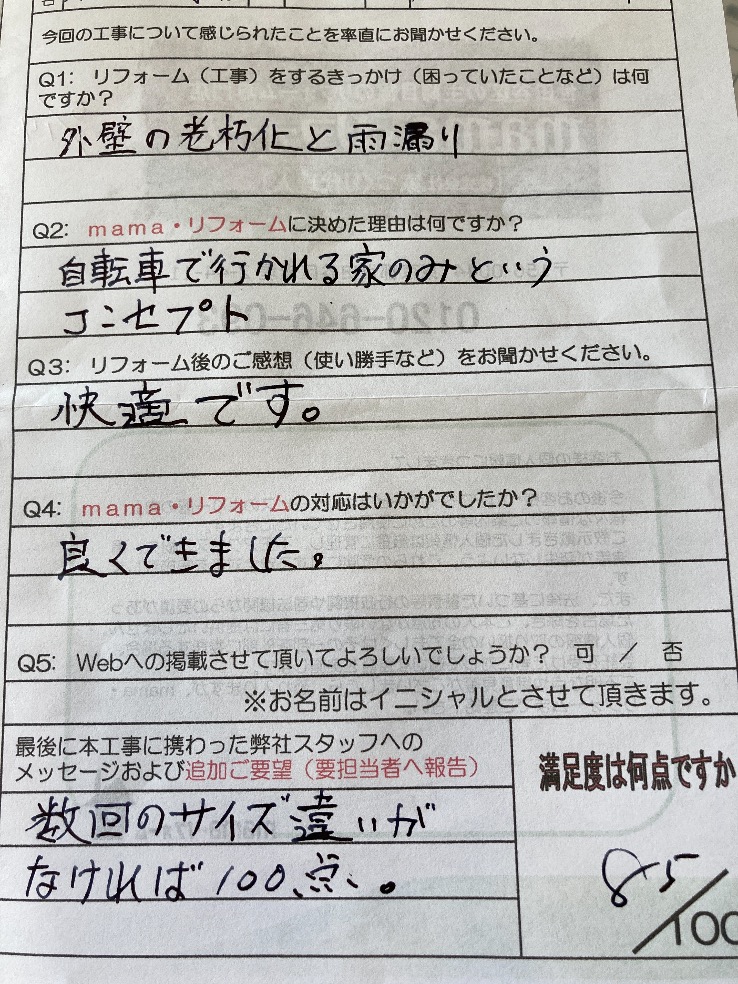 今回の工事について感じられたことを率直にお聞かせください。
Q1: リフォーム（工事）をするきっかけ（困っていたことなど）は何
ですか？
外壁の老朽化と雨漏り
Q2: mama・リフォームに決めた理由は何ですか？
自転車で行かれる家のみという
コンセプト
Q3: リフォーム後のご感想（使い勝手など）をお聞かせください。
快適です。
Q4: mama・リフォームの対応はいかがでしたか？
良くできました。
Q5: Webへの掲載させて頂いてよろしいでしょうか？ 可 ／ 否
※お名前はイニシャルとさせて頂きます。
最後に本工事に携わった弊社スタッフへの
メッセージおよび追加ご要望（要担当者へ報告）
数回のサイズ違いが
なければ100点。
満足度は何点ですか
85/100